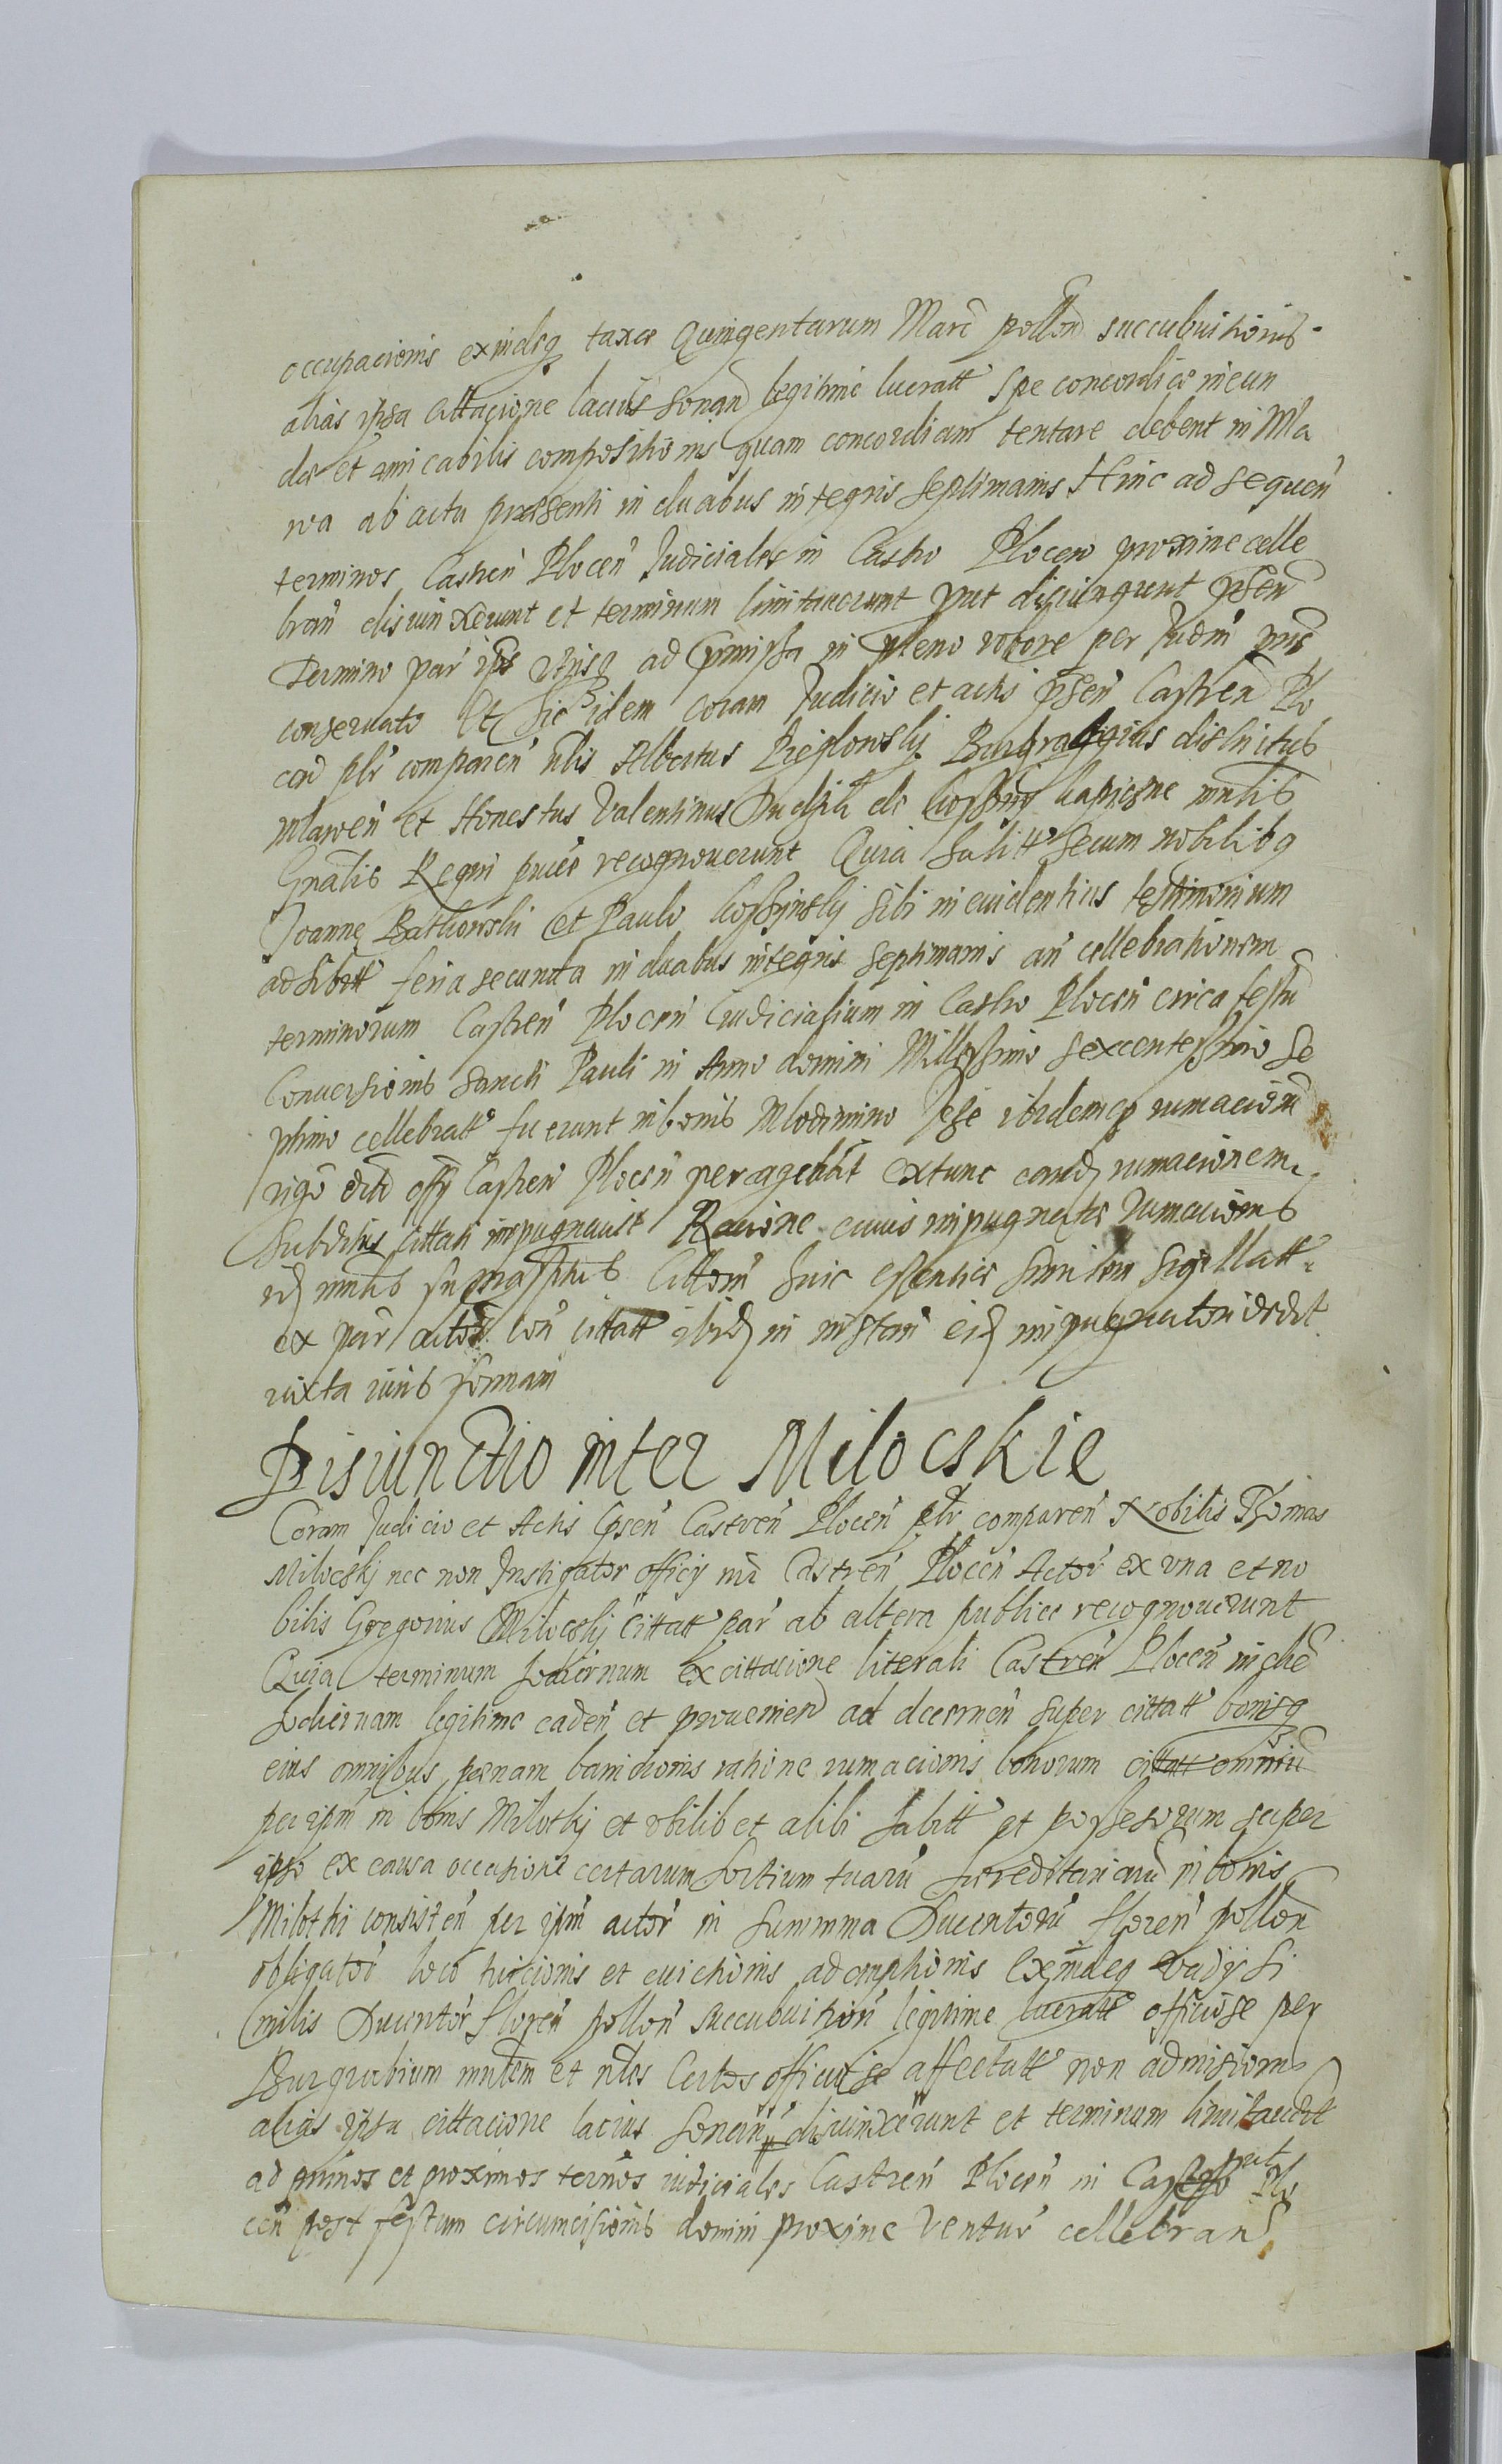 occupacionis exindeq taxae Quingentarum Marc pollon succubuitionis
alias ipsa cittacione lacius sonan legitime lucratt Spe concordiae ineun
dae et amicabilis compositionis quam concordiam tentare debent in Mla
wa ab actu praesenti in duabus integris septimanis Hinc ad sequen
terminos Castren Plocen Judiciales in Castro Plocen proxime celle
bran disiunxerunt et terminum limitaverunt prut disiungunt psen
Termino par ips utrisq ad pmissa in pleno robore per Judm pns
conservato Et sic idem coram Judicio et actis psen Castren Plo
cen plr comparen nlis Albertus Burgrabius districtus
Mlawen et Honestus Valentinus de
Gnalis Regni puce recognoverunt Quia habitt secum nobilibq
Joanne et Paulo sibi in evidentius testimonium
adhibitt feria secunda in duabus integris septimanis an cellebrationem
terminorum Castren Plocen Judicialium in Castro Plocen circa festu
Conversionis Sancti Pauli in Anno domini Millessimo sexcentessimo se
ptimo cellebratt fuerunt in bonis ibidemq rumacion
offy Castren Plocen peragebat extunc eand rumacionem
Subditus cittati impugnavit Racione cuius impugnatae rumacionis
id mnlis Cittem suie essentiae similem sigillatt
ex par actor con cittatt ibid in instan eid impugnatori dedit
iuxta iuris formam
Disiunctio inter Milocskie
Coram Judicio et Actis psen Castren Plocen plr comparen Nobilis Thomas
Milocskj nec non Instigator officy nri Castren Plocen Actor ex una et no
bilis Gregorius Milocskj cittatt par ab altera publice recognoverunt
Quia terminum hodiernum ex cittacione literali Castren Plocen in die
hodiernam legitime caden et provenien ad decernen super cittatt bonisq
eius omnibus paenam banicionis ratione rumacionis bonorum cittatt omniu
per ipm in bonis Milotky et ubilibet alibi habitt et possesorum super
ipso ex causa occasione certarum sortium suaru haereditariaru in bonis
Milotki consisten per ipm actor in summma Ducentoru floren pollon
obligator loco tuicionis et evictionis ademptionis Exindeq vadij si
milis Ducentor floren pollon succubuition legitime lucratt officiose per
Burgrabium mnlem et nles Certos officiose affectatt non admisionis
alias ipsa cittacione lacius sonan disiunxerunt et terminum limitaverut
ad primos et proximos termos iudiciales Castren Plocen in Castro prut Plo
cen post festum circumcisionis domini proxime ventur cellebran